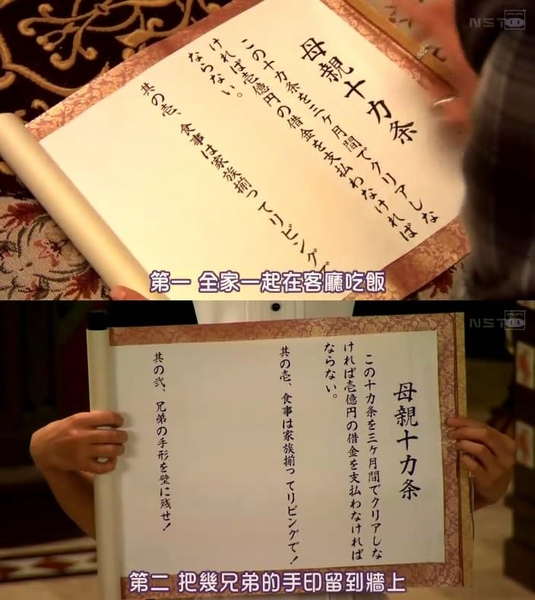 NST
母親十カ条
この十カ条を三ヶ月間でクリアしな
ければ壱億円の借金を支払わなければ
ならない。
其の壱、食事は家族揃ってリビングで
第一 全家一起在客廳吃飯
NST
母親十カ条
この十カ条を三ヶ月間でクリアしな
ければ壱億円の借金を支払わなければ
ならない。
其の壱、食事は家族揃ってリビングで！
其の弐、兄弟の手形を壁に残せ！
第二 把幾兄弟的手印留到牆上